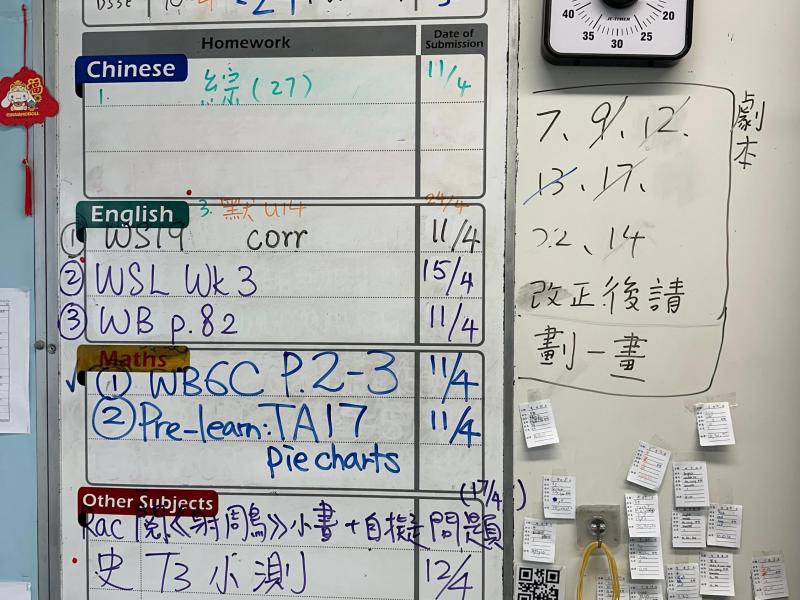 40 20
35 30 25
Homework
Date of Submission
Chinese
1. 綜(27) 11/4
3. 默 U14 24/4
English
① WS19 corr 11/4
② WSL Wk 3 15/4
③ WB p.82 11/4
Maths
✓ ① WB6C P.2-3 11/4
② Pre-learn: TA17 11/4
pie charts
Other Subjects
(17/4)
小書+自擬問題
史 T3 小測 12/4
劇本
7、9、12、
13、17、
22、14
改正後請
劃一畫